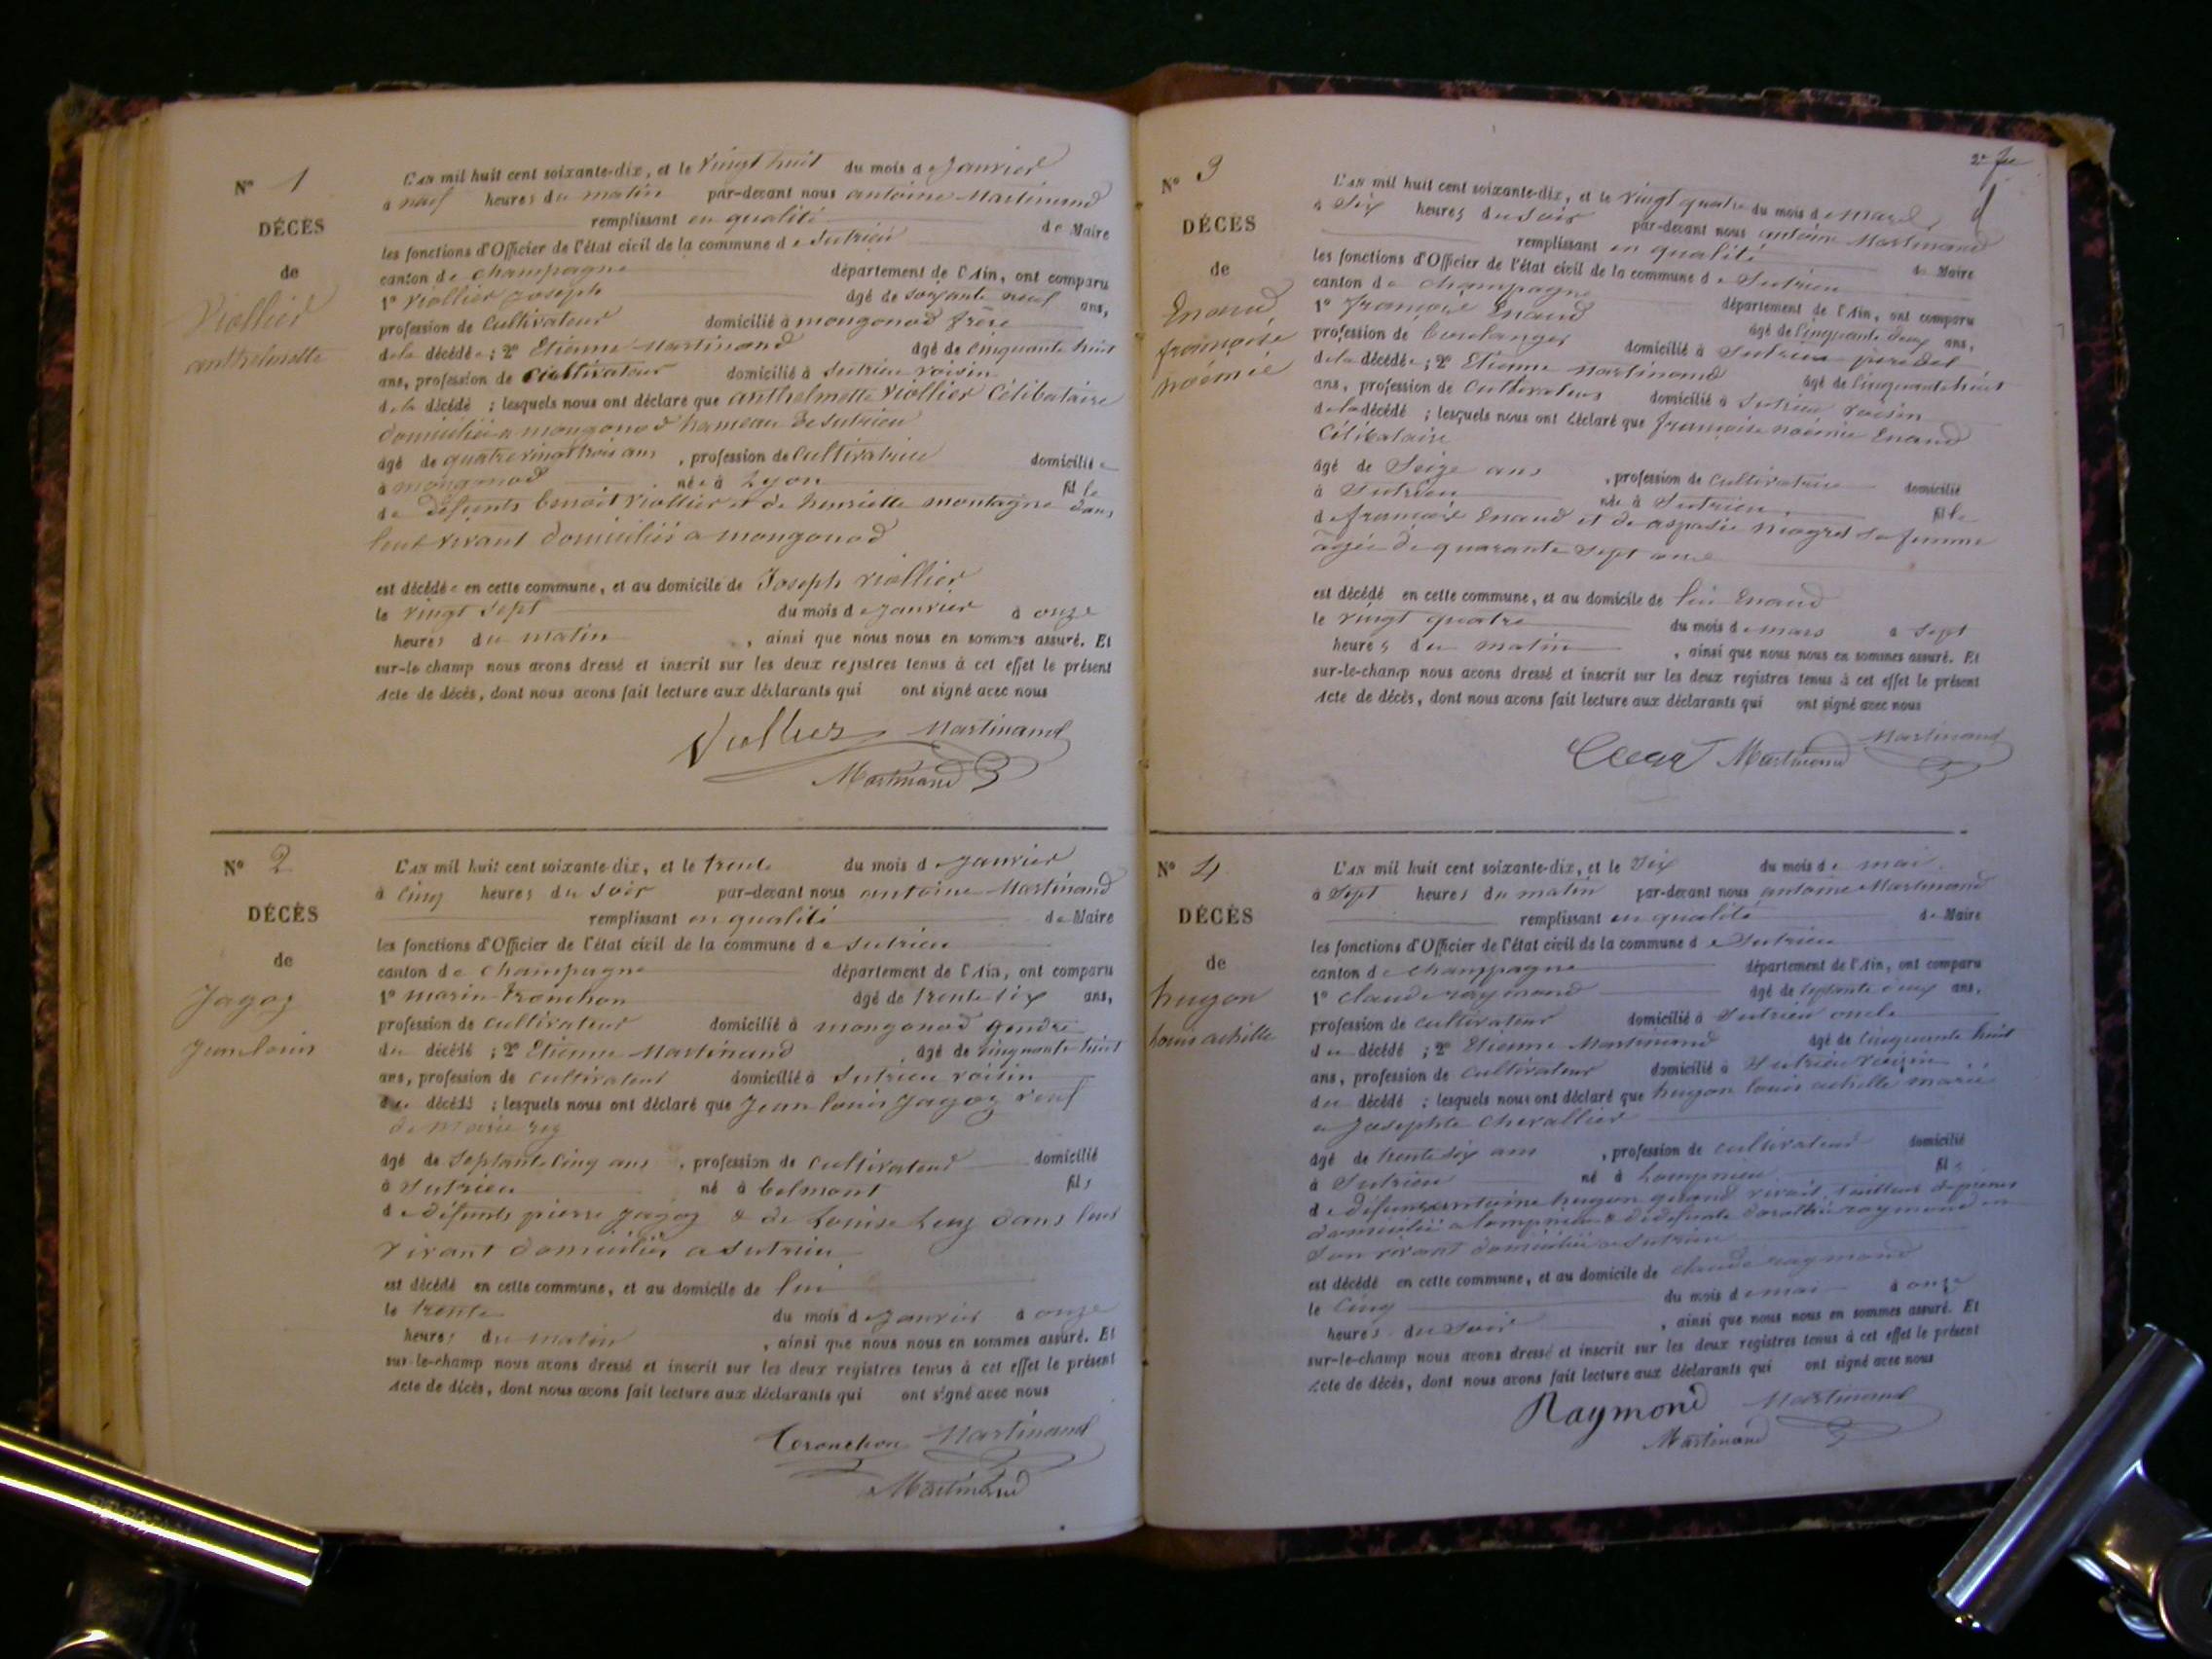 N° 1
DÉCÈS
de
Viollier
anthelmette
L'AN mil huit cent soixante-dix, et le vingt huit du mois de Janvier
à neuf heures du matin par-devant nous antoine Martinand
remplissant en qualité de Maire
les fonctions d'Officier de l'état civil de la commune de Sutrieu
canton de champagne département de l'Ain, ont comparu
1° Viollier Joseph âgé de soixante neuf ans,
profession de Cultivateur domicilié à mongonod frère
de la décédée ; 2° Etienne Martinand âgé de cinquante huit
ans, profession de Cultivateur domicilié à Sutrieu voisin
de la décédé ; lesquels nous ont déclaré que anthelmette Viollier Célibataire
domiciliée a mongonod hameau de Sutrieu
âgé de quatre vingt trois ans , profession de Cultivatrice domicilié e
à mongonod née à Lyon fille
de défunts benoit Viollier et de henriette montagne dans
leur vivant domiciliés a mongonod
est décédée en cette commune, et au domicile de Joseph Viollier
le vingt sept du mois de Janvier à onze
heures du matin , ainsi que nous nous en sommes assuré. Et
sur-le champ nous avons dressé et inscrit sur les deux registres tenus à cet effet le présent
Acte de décès, dont nous avons fait lecture aux déclarants qui ont signé avec nous
Viollier Martinand
Martinand
N° 2
DÉCÈS
de
Jagoz
Jean louis
L'AN mil huit cent soixante-dix, et le trente du mois de Janvier
à cinq heures du soir par-devant nous antoine Martinand
remplissant en qualité de Maire
les fonctions d'Officier de l'état civil de la commune de Sutrieu
canton de champagne département de l'Ain, ont comparu
1° marin tronchon âgé de trente six ans,
profession de cultivateur domicilié à mongonod gendre
du décédé ; 2° Etienne Martinand , âgé de cinquante huit
ans, profession de cultivateur domicilié à Sutrieu voisin
du décédé ; lesquels nous ont déclaré que Jean louis Jagoz veuf
de marie rey
âgé de septante cinq ans , profession de cultivateur domicilié
à Sutrieu né à belmont fils
de défunts pierre Jagoz & de Louise dans leur
vivant domiciliés a Sutrieu
est décédé en cette commune, et au domicile de lui
le trente du mois de Janvier à onze
heures du matin , ainsi que nous nous en sommes assuré. Et
sur-le-champ nous avons dressé et inscrit sur les deux registres tenus à cet effet le présent
Acte de décès, dont nous avons fait lecture aux déclarants qui ont signé avec nous
Tronchon Martinand
Martinand
N° 3
DÉCÈS
de
Enaud
françoise
noémie
L'AN mil huit cent soixante-dix, et le vingt quatre du mois de mars
à six heures du soir par-devant nous antoine Martinand
remplissant en qualité de Maire
les fonctions d'Officier de l'état civil de la commune de Sutrieu
canton de champagne département de l'Ain, ont comparu
1° françois Enaud âgé de cinquante deux ans,
profession de boulanger domicilié à Sutrieu père de
de la décédée ; 2° Etienne Martinand âgé de cinquante huit
ans, profession de cultivateur domicilié à Sutrieu voisin
de la décédé ; lesquels nous ont déclaré que françoise noémie Enaud
Célibataire
âgé de seize ans , profession de cultivatrice domicilié
à Sutrieu née à Sutrieu fille
de françois Enaud et de aspasie sa femme
agée de quarante sept ans
est décédé en cette commune, et au domicile de lui Enaud
le vingt quatre du mois de mars à sept
heures du matin , ainsi que nous nous en sommes assuré. Et
sur-le-champ nous avons dressé et inscrit sur les deux registres tenus à cet effet le présent
Acte de décès, dont nous avons fait lecture aux déclarants qui ont signé avec nous
Martinand Martinand
N° 4
DÉCÈS
de
hugon
louis achille
L'AN mil huit cent soixante-dix, et le six du mois de mai
à sept heures du matin par-devant nous antoine Martinand
remplissant en qualité de Maire
les fonctions d'Officier de l'état civil de la commune de Sutrieu
canton de champagne département de l'Ain, ont comparu
1° claude raymond âgé de septante deux ans,
profession de cultivateur domicilié à Sutrieu oncle
du décédé ; 2° Etienne Martinand âgé de cinquante huit
ans, profession de cultivateur domicilié à Sutrieu voisin
du décédé ; lesquels nous ont déclaré que hugon louis achille marié
a Josephte Chevallier
âgé de trente six ans , profession de cultivateur domicilié
à Sutrieu né à Lompnieu fils
de défunt antoine hugon quand vivait tailleur de pierres
domicilié a lompnieu & de défunte raymond en
son vivant domiciliée a Sutrieu
est décédé en cette commune, et au domicile de claude raymond
le cinq du mois de mai à onze
heures du soir , ainsi que nous nous en sommes assuré. Et
sur-le-champ nous avons dressé et inscrit sur les deux registres tenus à cet effet le présent
Acte de décès, dont nous avons fait lecture aux déclarants qui ont signé avec nous
Raymond Martinand
Martinand